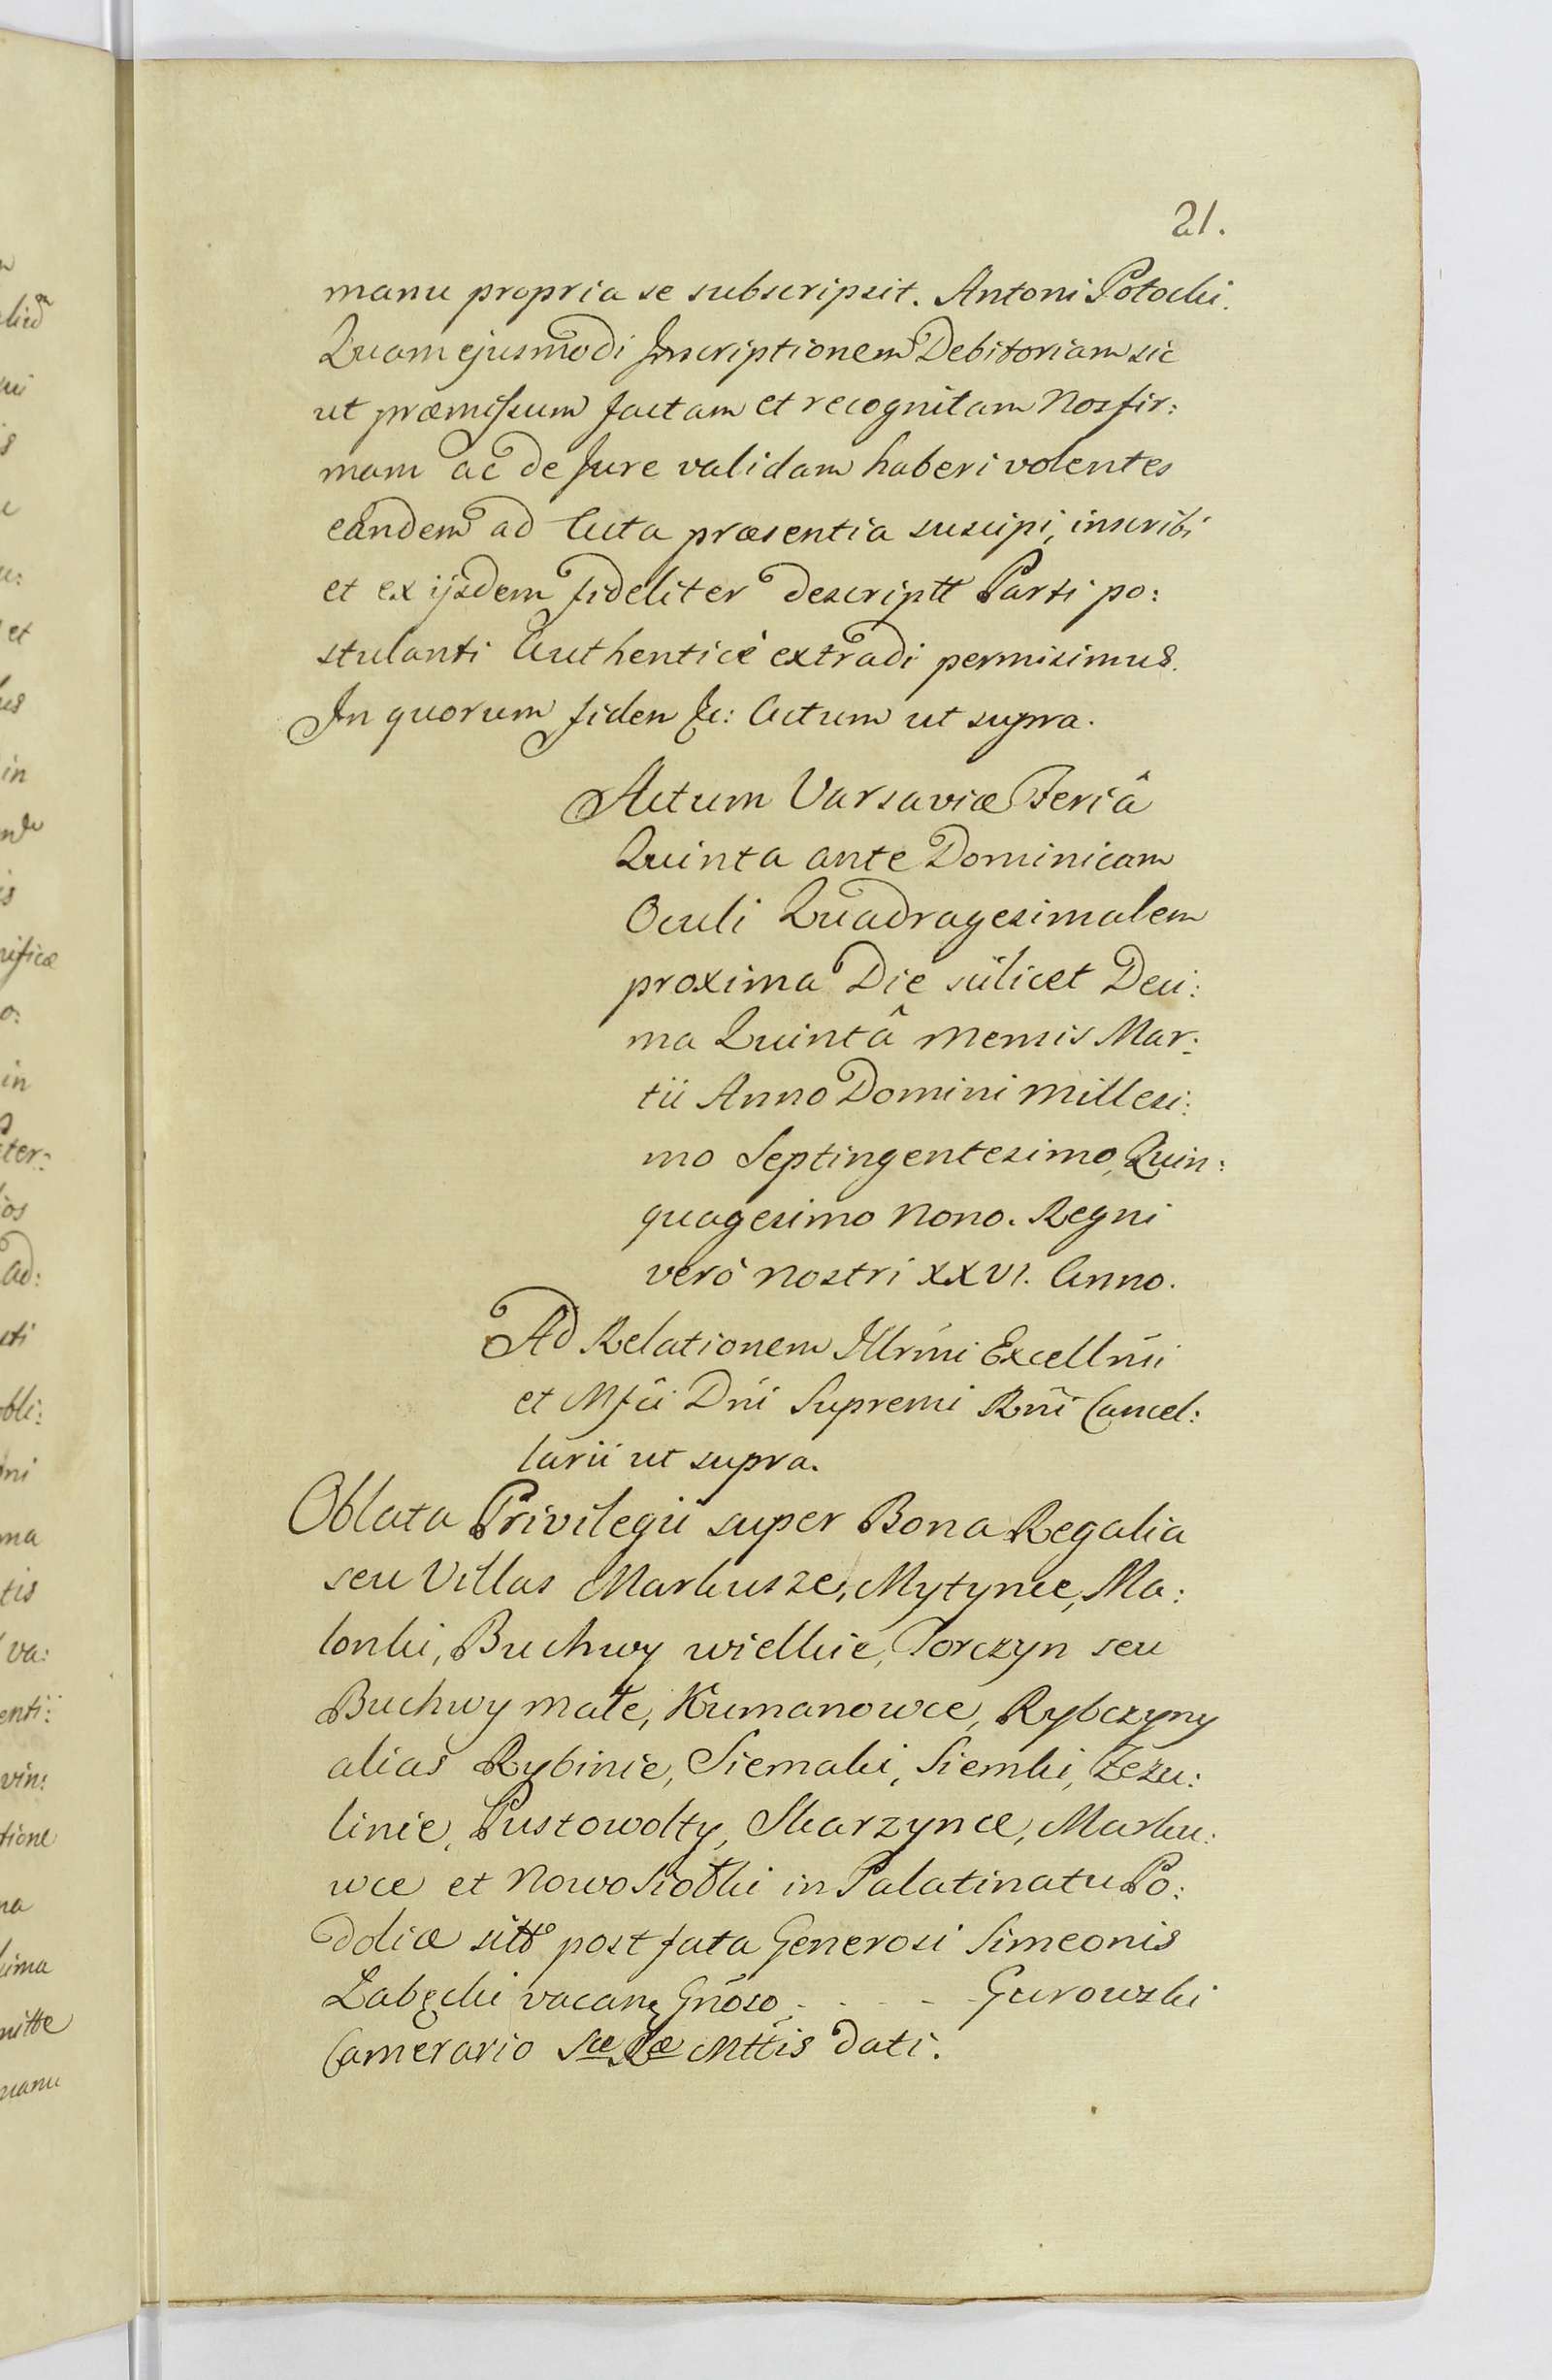 21.
manu propria se subscripsit. Antoni Potocki.
Quam ejusmodi Inscriptionem Debitoriam sic
ut præmissum factam et recognitam Nos fir:
mam ac de Jure validam haberi volentes
eandem ad Acta præsentia suscipi, inscribi
et ex ijsdem fideliter descriptt Parti po:
stulanti Authenticè extradi permisimus.
In quorum fidem &c: Actum ut supra.
Actum Varsaviæ Feriâ
Quinta ante Dominicam
Oculi Quadragesimalem
proxima Die scilicet Deci:
ma Quintâ Mensis Mar:
tii Anno Domini Millesi:
mo Septingentesimo Quin:
quagesimo Nono. Regni
verò Nostri XXVI. Anno.
Ad Relationem Illrmi Excellmi
et Mfci Dni Supremi Rni Cancel:
larii ut supra.
Oblata Privilegii super Bona Regalia
seu Villas Markusze, Mytynce, Ma:
lonki, Buchwy wielkie, Torczyn seu
Buchwy małe, Kumanowce, Rybczyny
alias Rybinie, Siemaki, Siemki, Zezu:
linie, Pustowolty, Skarzynce, Marku:
wce et Nowosiołki in Palatinatu Po:
doliæ sitto post fata Generosi Simeonis
Zabęcki vacan Gnoso - - - - Gurowski
Camerario Sæ Ræ Mttis dati.